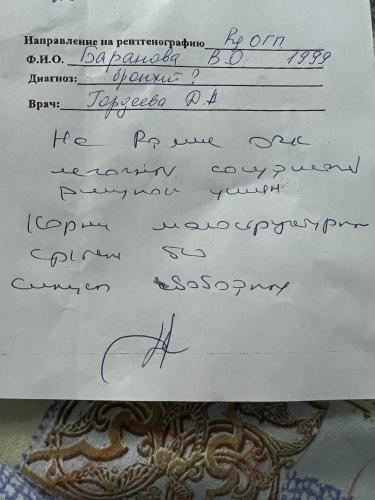 Направление на рентгенографию Rg ОГП
Ф.И.О. Баранова В.О 1999
Диагноз: бронхит?
Врач: Гордеева Д.А
На Rg-ме ОГК
легочн. сосудистый
рисунок усилен
Корни малоструктурн
срtень б/о
синусы свободны